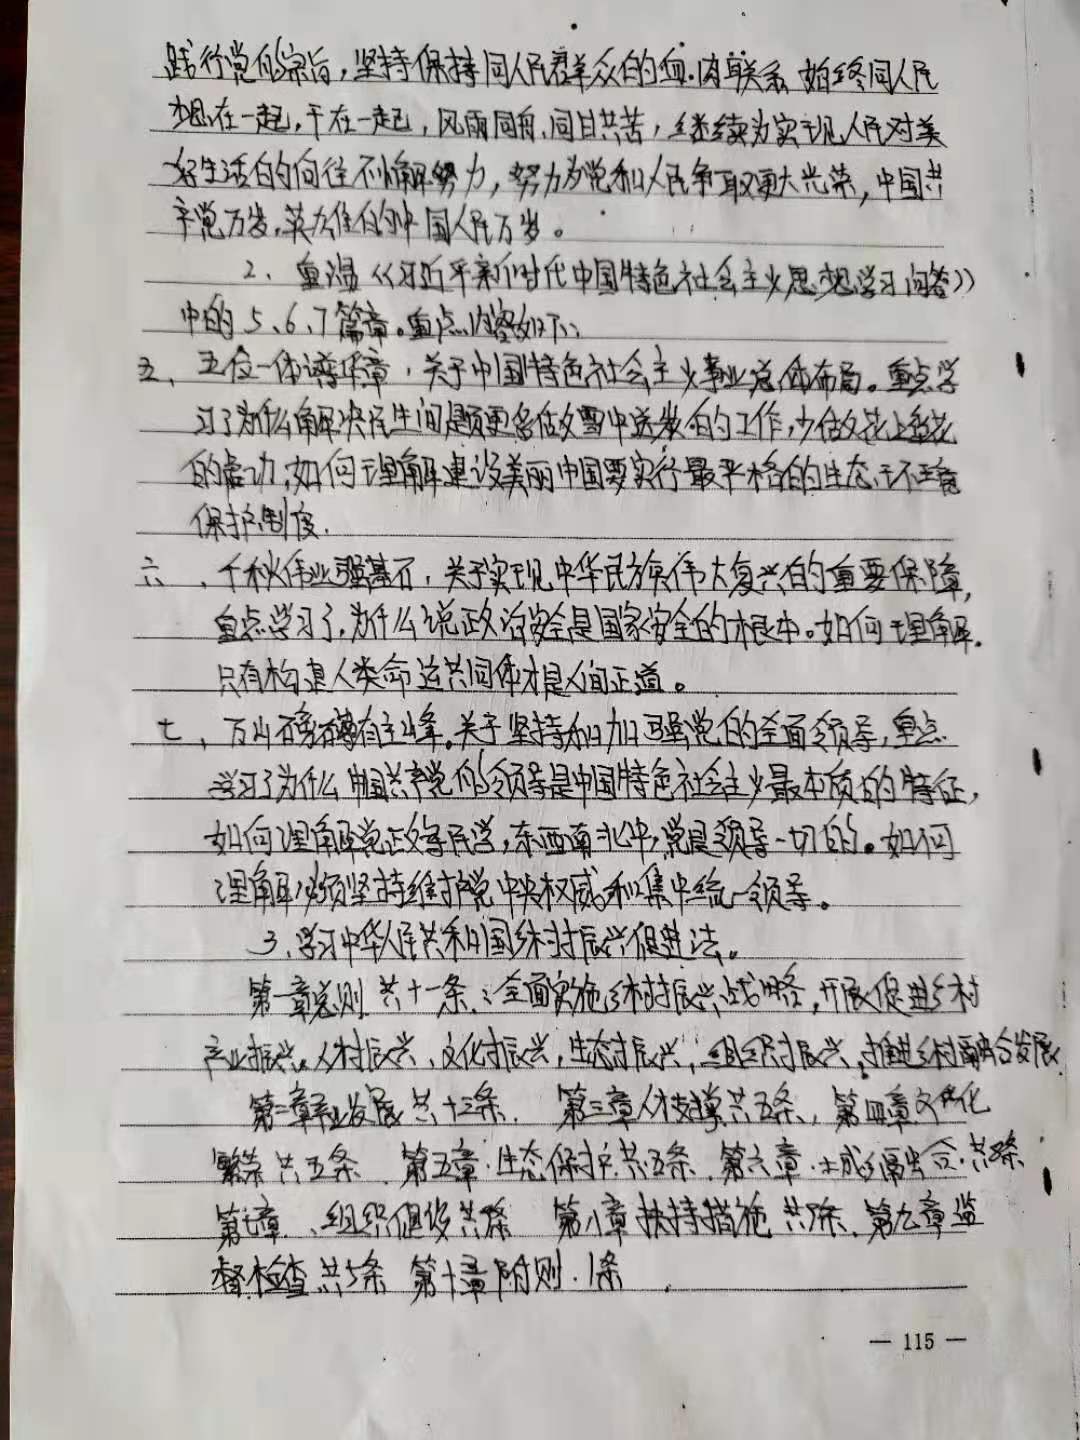 践行党的宗旨，坚持保持同人民群众的血肉联系，始终同人民
想在一起，干在一起，风雨同舟、同甘共苦，继续为实现人民对美
好生活的向往不懈努力，努力为党和人民争取更大光荣，中国共
产党万岁，英雄的中国人民万岁。
2、重温《习近平新时代中国特色社会主义思想学习问答》
中的5、6、7篇章。重点内容如下：
五、五位一体谱华章，关于中国特色社会主义事业总体布局。重点学
习了为什么解决民生问题要多做雪中送炭的工作，少做花上
的，如何理解建设美丽中国要实行最严格的生态环境
保护制度.
六、千秋伟业强基石，关于实现中华民族伟大复兴的重要保障，
重点学习了，为什么说政治安全是国家安全的根本。如何理解.
只有构建人类命运共同体才是人间正道。
七、万山磅礴有主峰。关于坚持和加强党的全面领导，重点
学习了为什么中国共产党的领导是中国特色社会主义最本质的特征，
如何理解党政军民学，东西南北中，党是领导一切的。如何
理解必须坚持维护党中央权威和集中统一领导。
3、学习中华人民共和国乡村振兴促进法。
第一章总则 共十一条：全面实施乡村振兴战略，开展促进乡村
产业振兴、人才振兴、文化振兴，生态振兴，组织振兴，推进乡村融合发展
第二章产业发展 共十三条. 第三章人才支撑共五条，第四章文化
繁荣 共五条 第五章·生态保护 共五条. 第六章·城乡融合·共条
第七章、组织建设共条 第八章扶持措施 共条、第九章监
督检查 共5条 第十章附则.1条
— 115 —